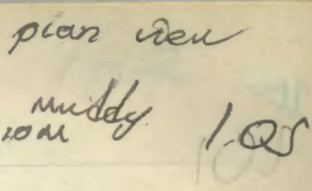 plan view
muddy
20M 1.05